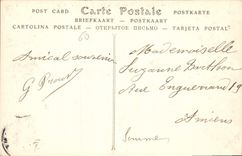 POST CARD Carte Postale POSTKARTE
BRIEFKAART — POSTKAART
CARTOLINA POSTALE — ОТКРЫТОЕ ПИСЬМО — TARJETA POSTAL
Amical souvenir
G Prout
Mademoiselle
Suzanne Berthon
Rue Enguerrand 19
Amiens
Somme